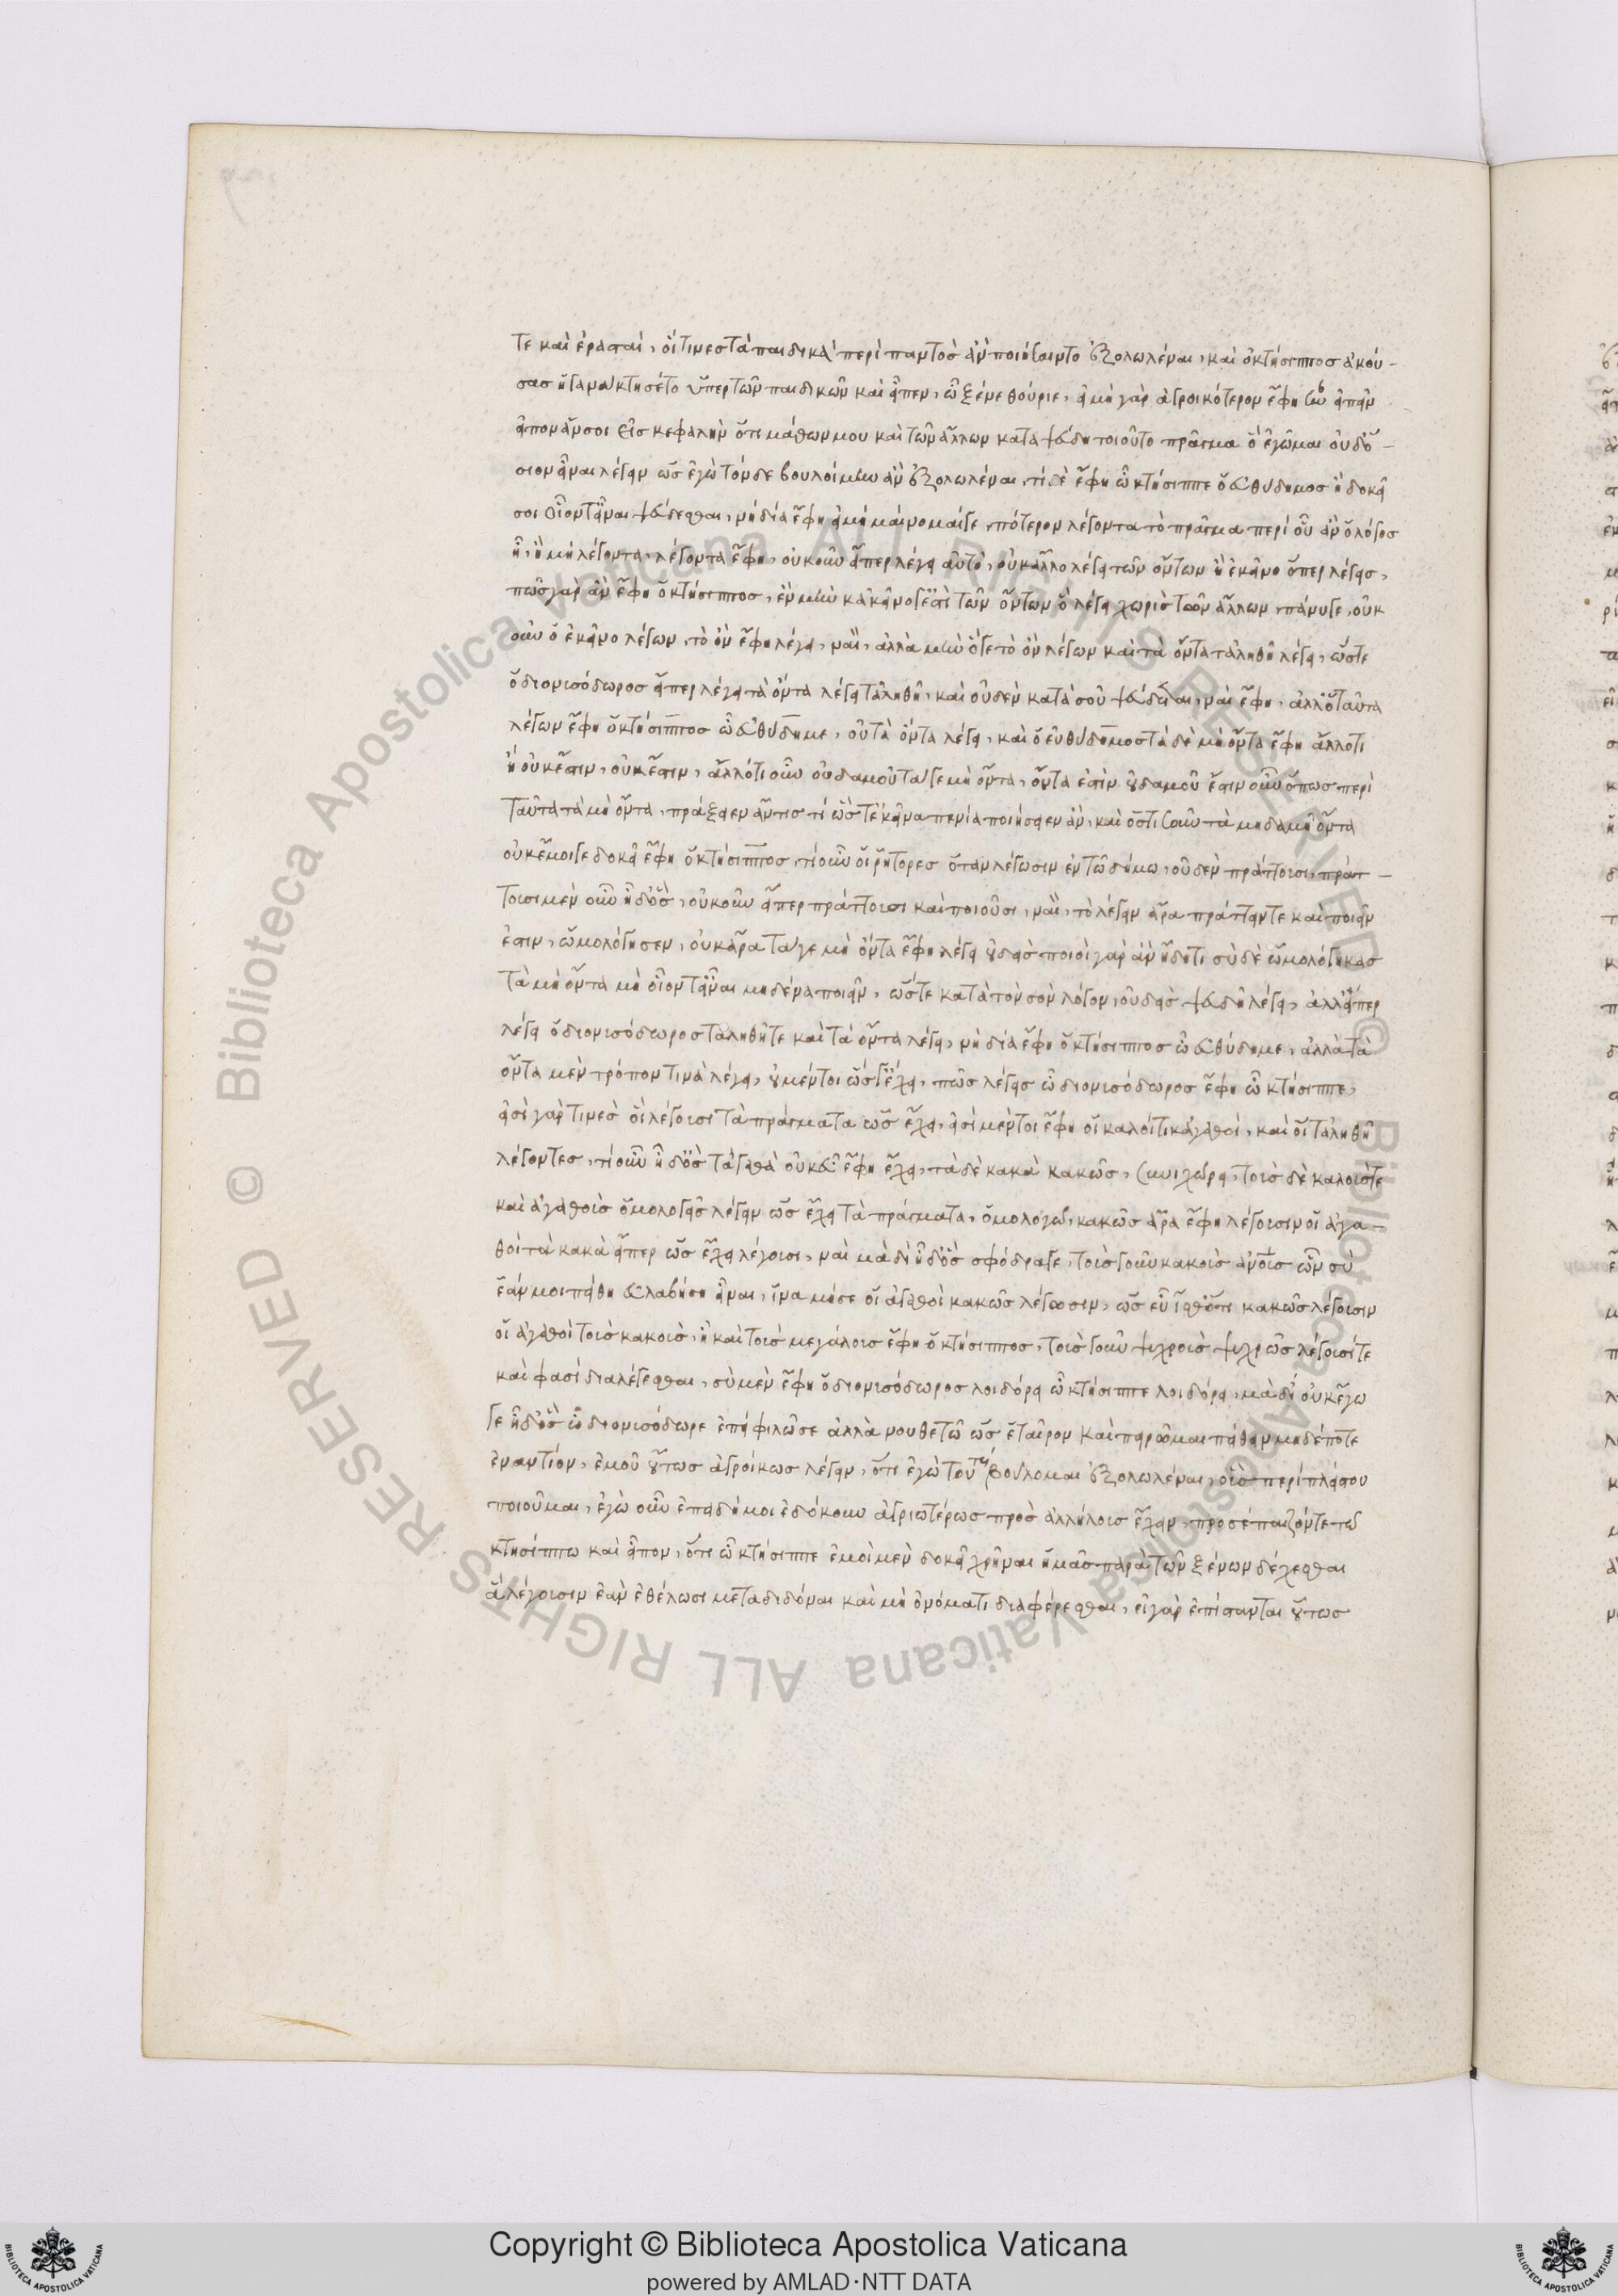 τε καὶ ἐρασταὶ, οἵτινες τὰ παιδικὰ περὶ παντὸς ἂν ποιήσαιντο ἐξολωλέναι, καὶ ὁ κτήσιππος ἀκού-
σας ἠγανάκτησέ τε ὑπὲρ τῶν παιδικῶν καὶ εἶπεν, ὦ ξένε θούριε, εἰ μὴ γὰρ ἀγροικότερον ἔφη ἦν εἰπεῖν
εἶπον ἄν σοι εἰς κεφαλὴν ὅτι μαθών μου καὶ τῶν ἄλλων καταψεύδη τοιοῦτο πρᾶγμα ὃ ἐγῶμαι οὐδ' ὅ-
σιον εἶναι λέγειν ὡς ἐγὼ τόνδε βουλοίμην ἂν ἐξολωλέναι, τί δὲ ἔφη ὦ κτήσιππε ὁ εὐθύδημος ἦ δοκεῖ
σοι οἷόν τ' εἶναι ψεύδεσθαι, νὴ δία ἔφη εἰ μὴ μαίνομαί γε, πότερον λέγοντα τὸ πρᾶγμα περὶ οὗ ἂν ὁ λόγος
ἦ, ἢ μὴ λέγοντα, λέγοντα ἔφη, οὐκοῦν εἴπερ λέγει αὐτὸ, οὐκ ἄλλο λέγει τῶν ὄντων ἢ ἐκεῖνο ὅπερ λέγει,
πῶς γὰρ ἂν ἔφη ὁ κτήσιππος, ἓν μὴν κἀκεῖνό γ' ἐστὶ τῶν ὄντων ὃ λέγει χωρὶς τῶν ἄλλων, πάνυ γε, οὐκ
οὖν ὁ ἐκεῖνο λέγων, τὸ ὂν ἔφη λέγει, ναὶ, ἀλλὰ μὴν ὅ γε τὸ ὂν λέγων καὶ τὰ ὄντα τἀληθῆ λέγει, ὥστε
ὁ διονισόδωρος εἴπερ λέγει τὰ ὄντα λέγει τἀληθῆ, καὶ οὐδὲν κατὰ σοῦ ψεύδεται, ναὶ ἔφη, ἀλλ' ὁ ταῦτα
λέγων ἔφη ὁ κτήσιππος ὦ εὐθύδημε, οὐ τὰ ὄντα λέγει, καὶ ὁ εὐθύδημος τὰ δὲ μὴ ὄντα ἔφη ἄλλο τι
ἢ οὐκ ἔστιν, οὐκ ἔστιν, ἄλλό τι οὖν οὐδαμοῦ τά γε μὴ ὄντα, ὄντα ἐστὶν οὐδαμοῦ ἔστιν οὖν ὅπως περὶ
ταῦτα τὰ μὴ ὄντα, πράξειεν ἄν τις τί ὥστ' ἐκεῖνα ποιήσειεν ἂν, καὶ ὁστισοῦν τὰ μηδαμῆ ὄντα
οὐκ ἔμοιγε δοκεῖ ἔφη ὁ κτήσιππος, τί οὖν οἱ ῥήτορες ὅταν λέγωσιν ἐν τῶ δήμω, οὐδὲν πράττουσι, πράτ-
τουσι μὲν οὖν ἦ δ' ὃς, οὐκοῦν εἴπερ πράττουσι καὶ ποιοῦσι, ναὶ, τὸ λέγειν ἄρα πράττειν τε καὶ ποιεῖν
ἐστιν, ὡμολόγησεν, οὐκ ἄρα τά γε μὴ ὄντα ἔφη λέγει οὐδεὶς ποιοῖ γὰρ ἂν ἤδη τι σὺ δὲ ὡμολόγηκας
τὰ μὴ ὄντα μὴ οἷόν τ' εἶναι μηδένα ποιεῖν, ὥστε κατὰ τὸν σὸν λόγον, οὐδεὶς ψευδῆ λέγει, ἀλλ' εἴπερ
λέγει ὁ διονισόδωρος τἀληθῆ τε καὶ τὰ ὄντα λέγει, νὴ δία ἔφη ὁ κτήσιππος ὦ εὐθύδημε, ἀλλὰ τὰ
ὄντα μὲν τρόπον τινὰ λέγει, οὐ μέντοι ὥς γ' ἔχει, πῶς λέγεις ὦ διονισόδωρος ἔφη ὦ κτήσιππε,
εἰσὶ γάρ τινες οἳ λέγουσι τὰ πράγματα ὡς ἔχει, εἰσὶ μέντοι ἔφη οἱ καλοί τι κἀγαθοὶ, καὶ οἱ τἀληθῆ
λέγοντες, τί οὖν ἦ δ' ὃς τἀγαθὰ οὐκ εὖ ἔφη ἔχει, τὰ δὲ κακὰ κακῶς, συνεχώρει, τοὺς δὲ καλούς τε
καὶ ἀγαθοὺς ὁμολογεῖς λέγειν ὡς ἔχει τὰ πράγματα, ὁμολογῶ, κακῶς ἄρα ἔφη λέγουσιν οἱ ἀγα-
θοὶ τὰ κακὰ εἴπερ ὡς ἔχει λέγουσι, ναὶ μὰ δί' ἦ δ' ὃς σφόδρα γε, τοὺς γοῦν κακοὺς ἀνους ὧν σὺ
ἐάν μοι πείθη εὐλαβήση εἶναι, ἵνα μή σε οἱ ἀγαθοὶ κακῶς λέγωσιν, ὡς εὖ ἴσθ' ὅτι κακῶς λέγουσιν
οἱ ἀγαθοὶ τοὺς κακοὺς, ἦ καὶ τοὺς μεγάλους ἔφη ὁ κτήσιππος, τοὺς γοῦν ψυχροὺς ψυχρῶς λέγουσί τε
καὶ φασὶ διαλέγεσθαι, σὺ μὲν ἔφη ὁ διονισόδωρος λοιδορεῖ ὦ κτήσιππε λοιδορεῖ, μὰ δί' οὐκ ἔγω
γε ἦ δ' ὃς ὦ διονισόδωρε ἐπεὶ φιλῶ σε ἀλλὰ νουθετῶ ὡς ἑταῖρον καὶ πειρῶμαι πείθειν μηδέποτε
ἐναντίον, ἐμοῦ οὕτως ἀγροίκως λέγειν, ὅτι ἐγὼ τούτους βούλομαι ἐξολωλέναι, οὓς περὶ πλείσου
ποιοῦμαι, ἐγὼ οὖν ἐπειδή μοι ἐδόκουν ἀγριωτέρως πρὸς ἀλλήλους ἔχειν, προσέπαιζόν τε τὸν
κτησίππω καὶ εἶπον, ὅτι ὦ κτήσιππε ἐμοὶ μὲν δοκεῖ χρῆναι ἡμᾶς παρὰ τῶν ξένων δέχεσθαι
ἃ λέγουσιν ἐὰν ἐθέλωσι μεταδιδόναι καὶ μὴ ὀνόματι διαφέρεσθαι, εἰ γὰρ ἐπίστανται οὕτως
Copyright © Biblioteca Apostolica Vaticana
powered by AMLAD·NTT DATA